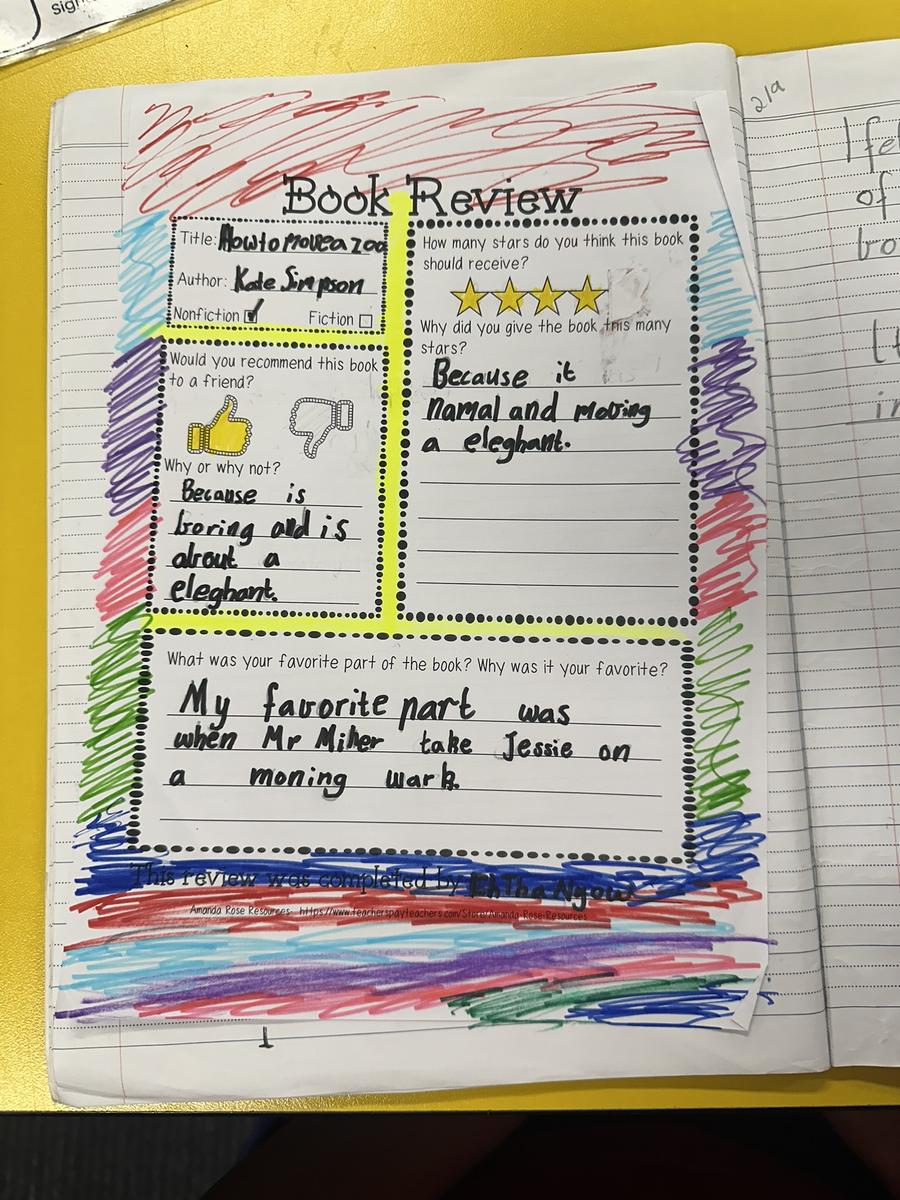 sign
Book Review
Title: How to move a zoo
Author: Kate Simpson
Nonfiction Fiction
Would you recommend this book
to a friend?
Why or why not?
Because is
boring and is
about a
eleghant.
How many stars do you think this book
should receive?
Why did you give the book this many
stars?
Because it
namal and moving
a eleghant.
What was your favorite part of the book? Why was it your favorite?
My favorite part was
when Mr Miller take Jessie on
a moning wark.
This review was completed by EhTha Ngow
Amanda Rose Resources- https://www.teacherspayteachers.com/Store/Amanda-Rose-Resources
1
21a
I fe
of
bo